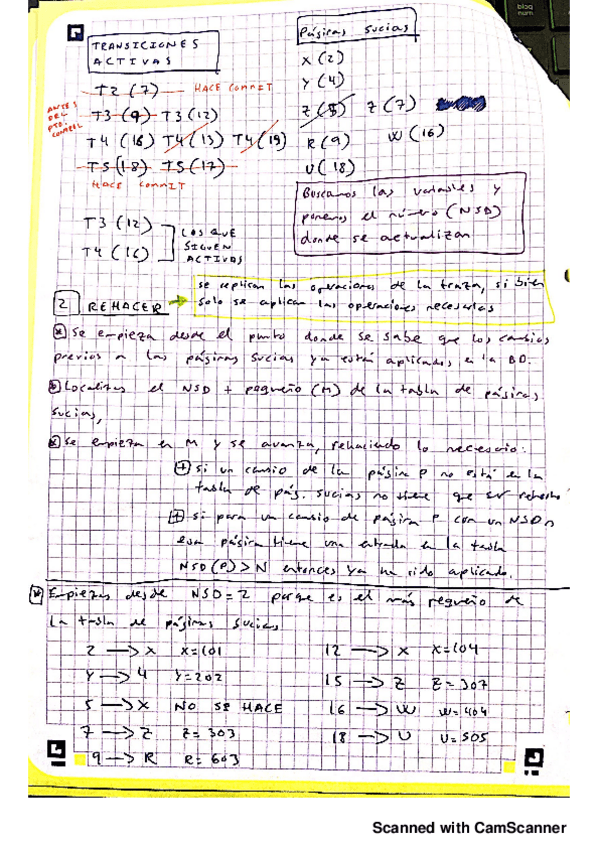 TRANSICIONES
ACTIVAS
T2 (7) — HACE COMMIT
ANTES
DEL
PTO.
CONTROL
T3 (9) T3 (12)
T4 (16) T4 (13) T4 (19)
T5 (18) T5 (17)
HACE COMMIT
T3 (12)
T4 (16)
LOS QUE
SIGUEN
ACTIVAS
Páginas sucias
X (2)
Y (4)
Z (5) Z (7)
R (9) W (16)
U (18)
Buscamos las variables y
ponemos el número (NSD)
donde se actualizan
2 REHACER →
se replican las operaciones de la traza, si bien
solo se aplican las operaciones necesarias
Se empieza desde el punto donde se sabe que los cambios
previos a las páginas sucias ya están aplicados en la BD.
Localizas el NSD + pequeño (M) de la tabla de páginas
sucias,
Se empieza en M y se avanza, rehaciendo lo necesario:
si un cambio de la página P no está en la
tabla de pág. sucias no tiene que ser rehecho
si para un cambio de página P con un NSD=n
esa página tiene una entrada en la tabla
NSD(P) > N entonces ya ha sido aplicado.
Empiezas desde NSD=2 porque es el más pequeño de
la tabla de páginas sucias
2 → X X=101
Y → 4 Y=202
5 → X NO SE HACE
7 → Z Z=303
9 → R R=603
12 → X X=104
15 → Z Z=307
16 → W W=404
18 → U U=505
Scanned with CamScanner